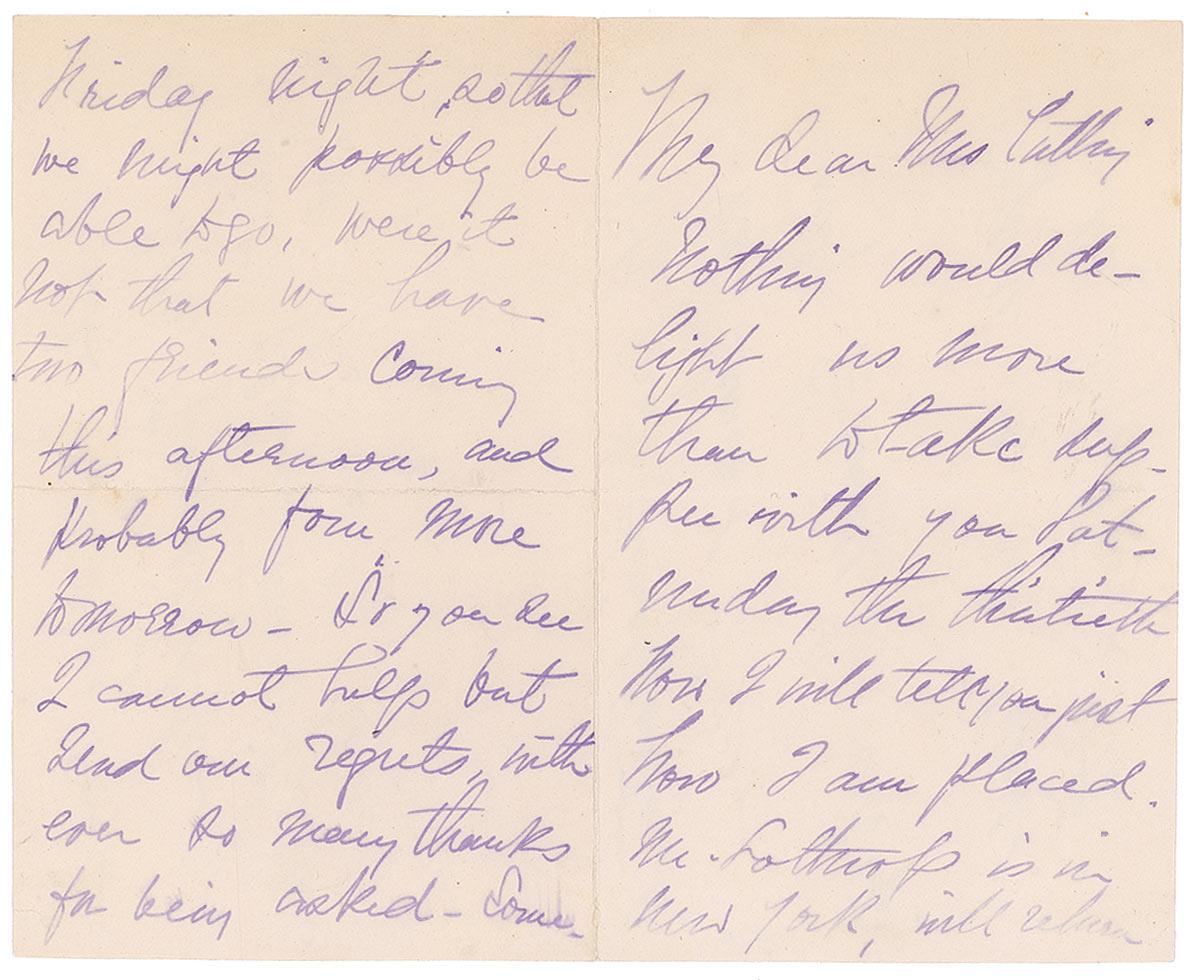 My dear Mrs Cutting
Nothing would de-
light us more
than to take sup-
per with you Sat-
urday the thirtieth
Now I will tell you just
how I am placed.
Mr. Lothrop is in
New York, will return
Friday night, so that
we might possibly be
able to go, were it
not that we have
two friends coming
this afternoon, and
probably four more
tomorrow - So you see
I cannot help but
send our regrets, with
ever so many thanks
for being asked - Some-